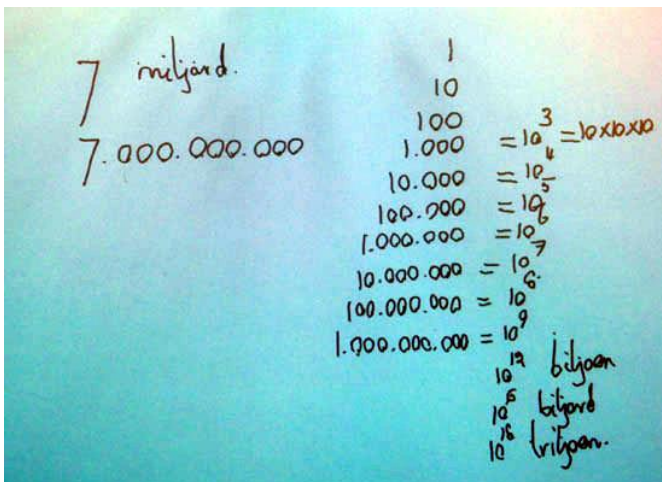 7 miljard.
7.000.000.000
1
10
100
1.000 = 10³ = 10x10x10
10.000 = 10⁴
100.000 = 10⁵
1.000.000 = 10⁶
10.000.000 = 10⁷
100.000.000 = 10⁸
1.000.000.000 = 10⁹
10¹² biljoen
10¹⁵ biljard
10¹⁸ triljoen.